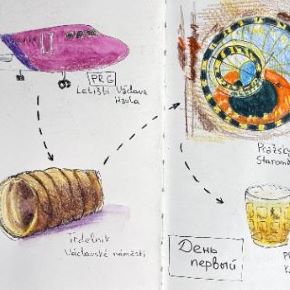 PRG
Letiště Václava
Havla
Trdelník
Václavské náměstí
Pražsk
Starom
День
первый